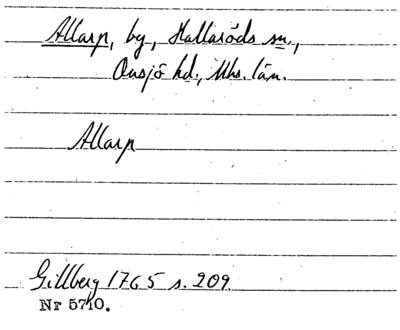 Allarp, by, Hallaröds sn.,
Onsjö hd., Mhs. län.
Allarp
Gillberg 1765 s. 209.
Nr 5710.